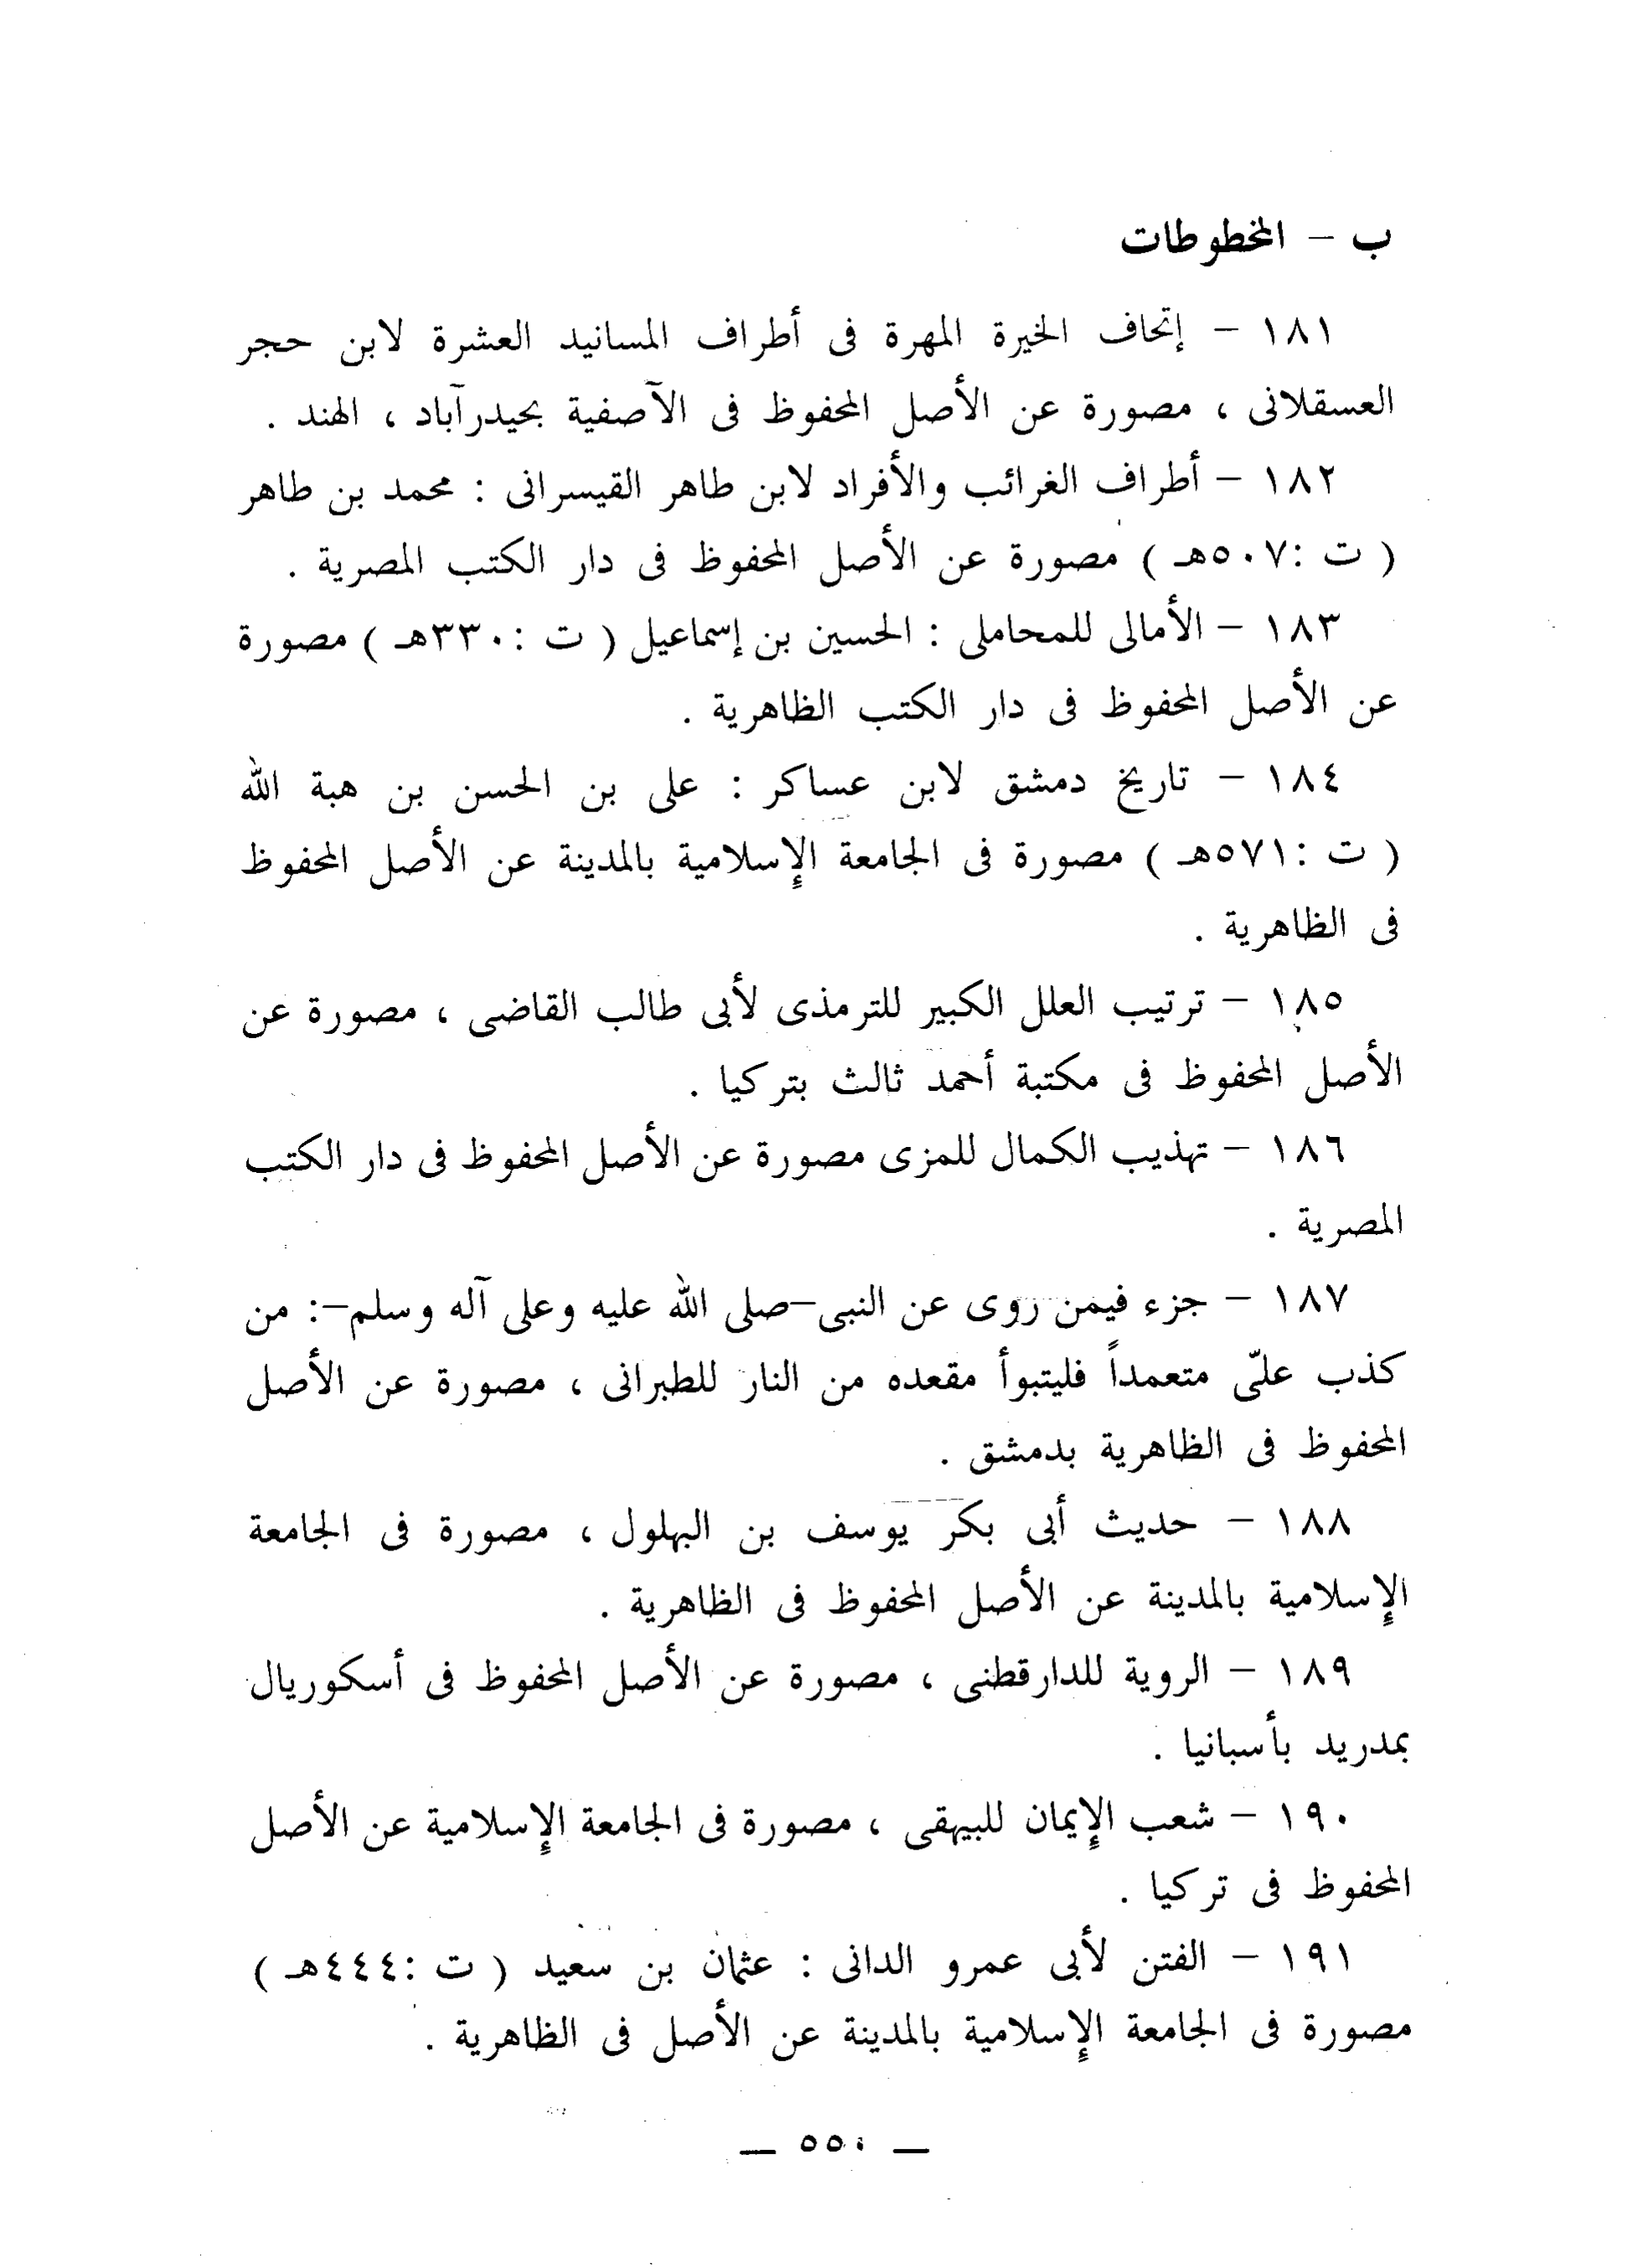 ب – المخطوطات
١٨١ – إتحاف الخيرة المهرة فى أطراف المسانيد العشرة لابن حجر
العسقلانى ، مصورة عن الأصل المحفوظ فى الآصفية بحيدرآباد ، الهند .
١٨٢ – أطراف الغرائب والأفراد لابن طاهر القيسرانى : محمد بن طاهر
( ت :٥٠٧هـ ) مصورة عن الأصل المحفوظ فى دار الكتب المصرية .
١٨٣ – الأمالى للمحاملى : الحسين بن إسماعيل ( ت :٣٣٠هـ ) مصورة
عن الأصل المحفوظ فى دار الكتب الظاهرية .
١٨٤ – تاريخ دمشق لابن عساكر : على بن الحسن بن هبة الله
( ت :٥٧١هـ ) مصورة فى الجامعة الإسلامية بالمدينة عن الأصل المحفوظ
فى الظاهرية .
١٨٥ – ترتيب العلل الكبير للترمذى لأبى طالب القاضى ، مصورة عن
الأصل المحفوظ فى مكتبة أحمد ثالث بتركيا .
١٨٦ – تهذيب الكمال للمزى مصورة عن الأصل المحفوظ فى دار الكتب
المصرية .
١٨٧ – جزء فيمن روى عن النبى–صلى الله عليه وعلى آله وسلم–: من
كذب علىّ متعمداً فليتبوأ مقعده من النار للطبرانى ، مصورة عن الأصل
المحفوظ فى الظاهرية بدمشق .
١٨٨ – حديث أبى بكر يوسف بن البهلول ، مصورة فى الجامعة
الإسلامية بالمدينة عن الأصل المحفوظ فى الظاهرية .
١٨٩ – الروية للدارقطنى ، مصورة عن الأصل المحفوظ فى أسكوريال
بمدريد بأسبانيا .
١٩٠ – شعب الإيمان للبيهقى ، مصورة فى الجامعة الإسلامية عن الأصل
المحفوظ فى تركيا .
١٩١ – الفتن لأبى عمرو الدانى : عثمان بن سعيد ( ت :٤٤٤هـ )
مصورة فى الجامعة الإسلامية بالمدينة عن الأصل فى الظاهرية .
— ٥٥٠ —